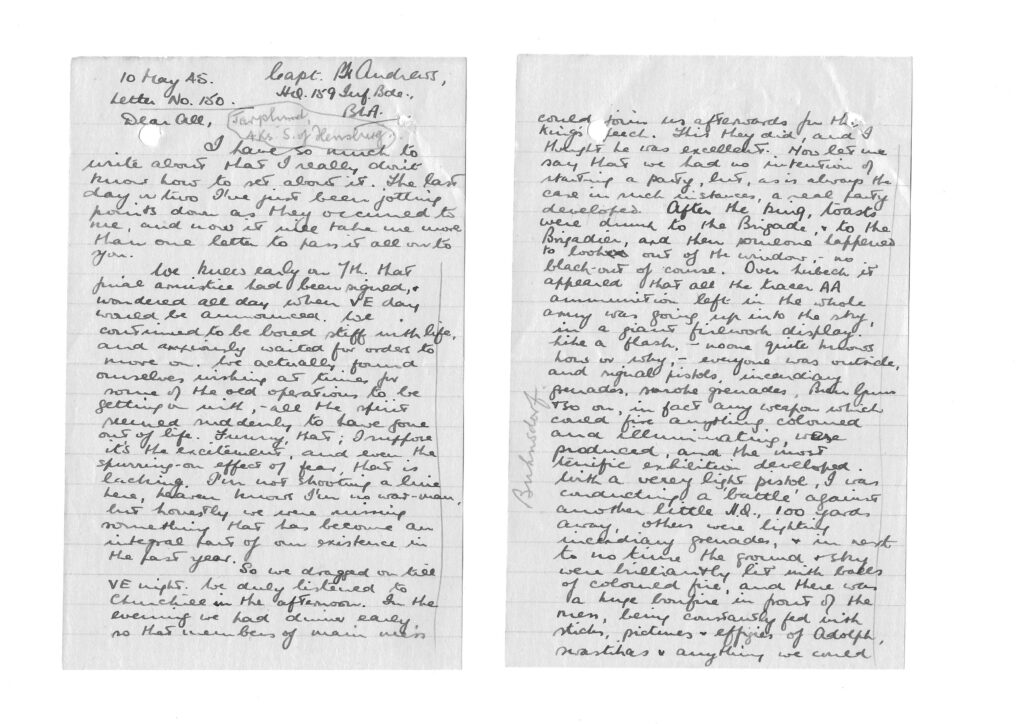 10 May 45.
Capt. Andrews,
HQ. 159 Inf. Bde.,
BLA.
Letter No. 150.
Dear All,
4 Ks S. of
I have so much to
write about that I really don't
know how to set about it. The last
day or two I've just been jotting
points down as they occurred to
me, and now it will take me more
than one letter to pass it all on to
you.
We knew early on 7th. that
final armistice had been signed, &
wondered all day when VE day
would be announced. We
continued to be bored stiff with life,
and anxiously waited for orders to
move on. We actually found
ourselves wishing at times for
some of the old operations to be
getting on with, - all the spirit
seemed suddenly to have gone
out of life. Funny, that; I suppose
it's the excitement, and even the
spurring-on effect of fear, that is
lacking. I'm not shooting a line
here, heaven knows I'm no war-man,
but honestly we were missing
something that has become an
integral part of our existence in
the past year.
So we dragged on till
VE night. We duly listened to
Churchill in the afternoon. In the
evening we had dinner early,
so that members of main mess
could join us afterwards for the
King's speech. This they did, and I
thought he was excellent. Now let me
say that we had no intention of
starting a party, but, as is always the
case in such instances, a real party
developed. After the King, toasts
were drunk to the Brigade, & to the
Brigadier, and then someone happened
to look out of the window, - no
black-out of course. Over Lubeck it
appeared that all the tracer AA
ammunition left in the whole
army was going up into the sky,
in a giant firework display.
Like a flash, - noone quite knows
how or why, - everyone was outside,
and signal pistols, incendiary
grenades, smoke grenades, Bren Guns
& so on, in fact any weapon which
could fire anything coloured
and illuminating, were
produced, and the most
terrific exhibition developed.
With a verey light pistol, I was
conducting a 'battle' against
another little H.Q., 100 yards
away, others were lighting
incendiary grenades, & in next
to no time the ground & sky
were brilliantly lit with balls
of coloured fire, and there was
a huge bonfire in front of the
mess, being constantly fed with
sticks, pictures & effigies of Adolph,
swastikas & anything we could